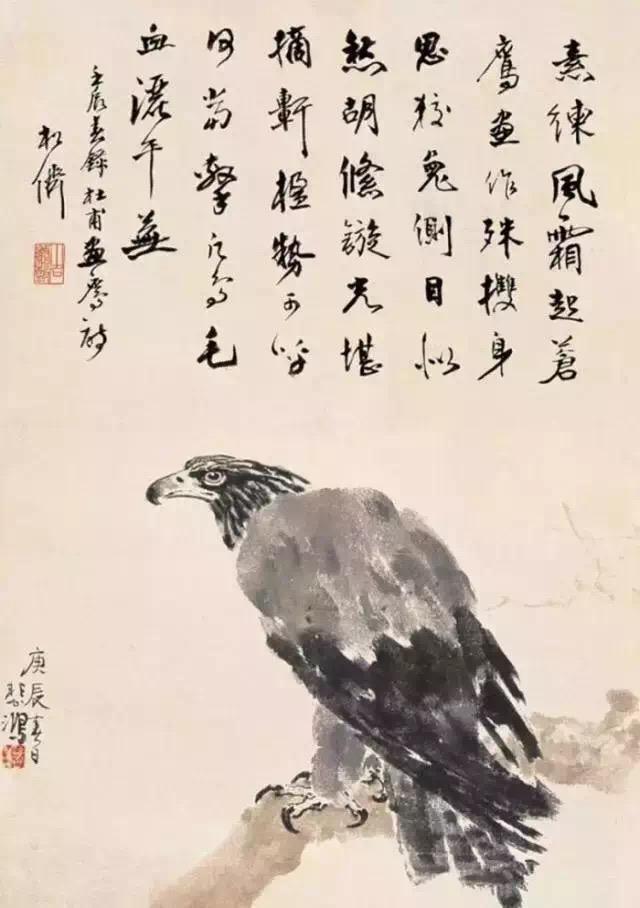 素練風霜起蒼
鷹畫作殊㩳身
思狡兔側目似
愁胡絛鏇光堪
摘軒楹勢可呼
何當擊凡鳥毛
血灑平蕪
壬辰春錄杜甫畫鷹詩
松
庚辰春日
悲鴻